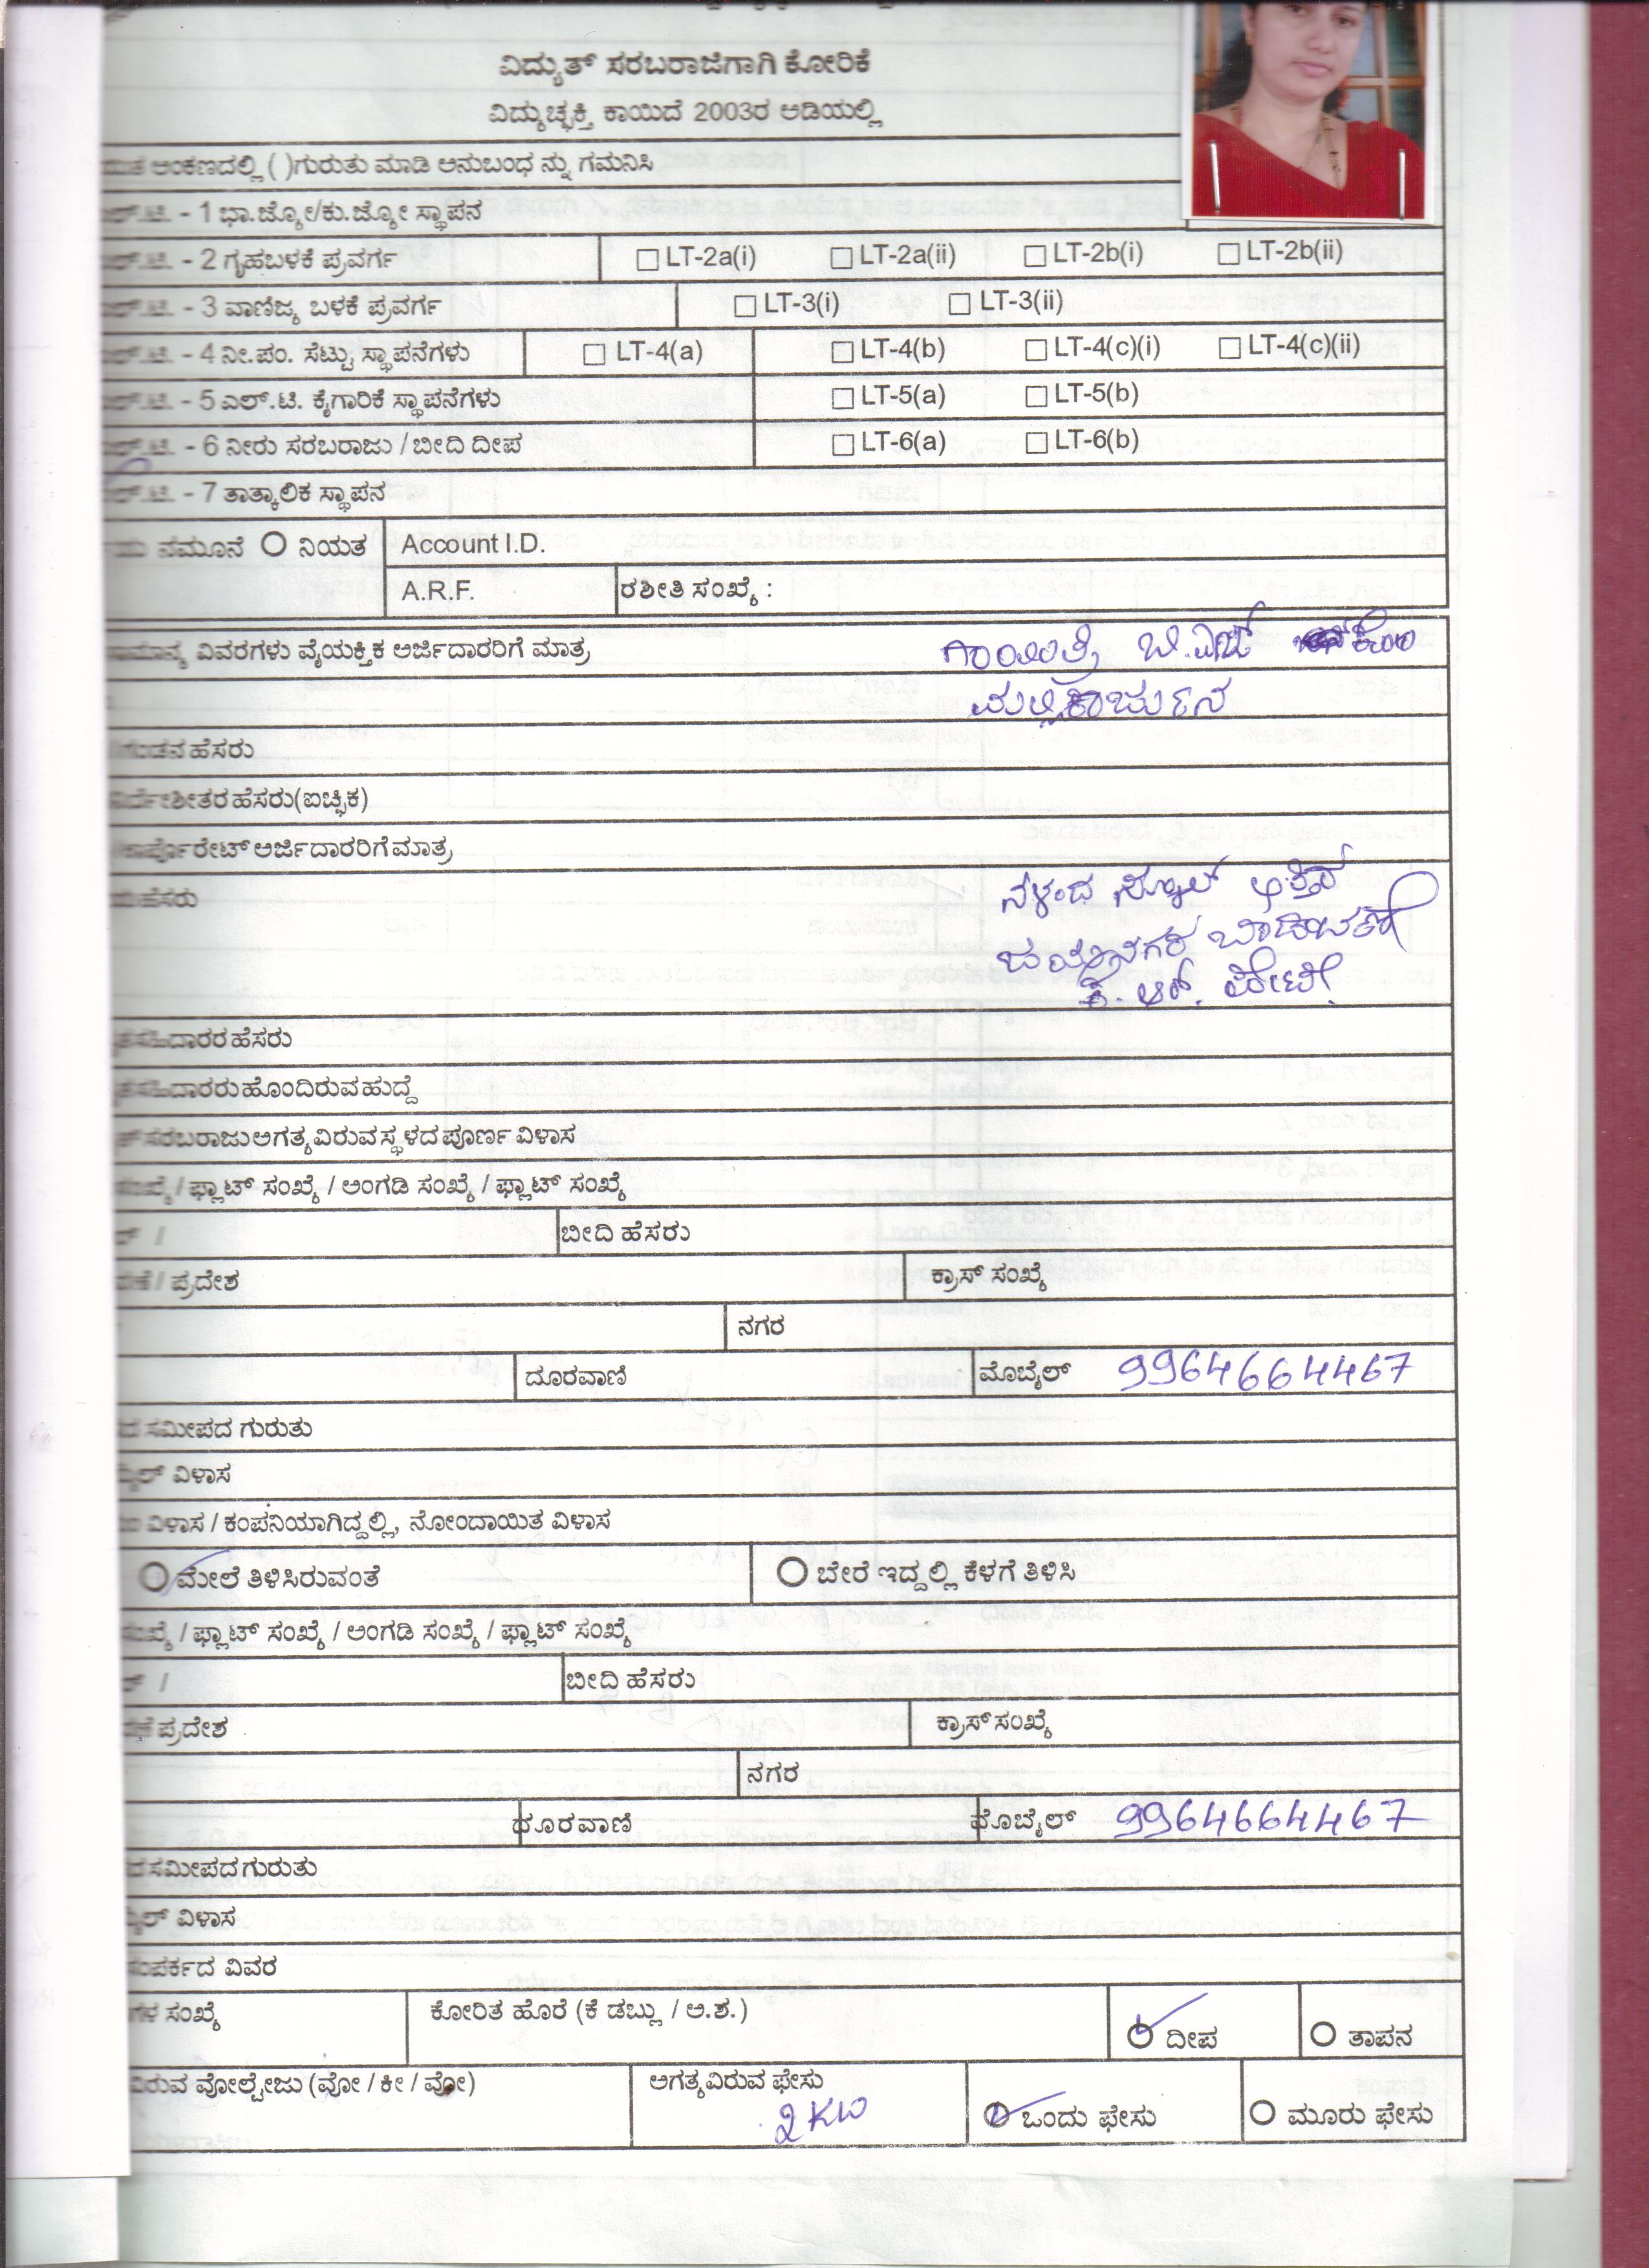 ವಿದ್ಯುತ್ ಸರಬರಾಜಿಗಾಗಿ ಕೋರಿಕೆ
ವಿದ್ಯುಚ್ಛಕ್ತಿ ಕಾಯಿದೆ 2003ರ ಅಡಿಯಲ್ಲಿ
ಅಂಕಣದಲ್ಲಿ ( )ಗುರುತು ಮಾಡಿ ಅನುಬಂಧ ನ್ನು ಗಮನಿಸಿ
- 1 ಭಾ.ಜ್ಯೋ/ಕು.ಜ್ಯೋ ಸ್ಥಾಪನ
- 2 ಗೃಹಬಳಕೆ ಪ್ರವರ್ಗ LT-2a(i) LT-2a(ii) LT-2b(i) LT-2b(ii)
- 3 ವಾಣಿಜ್ಯ ಬಳಕೆ ಪ್ರವರ್ಗ LT-3(i) LT-3(ii)
- 4 ನೀ.ಪಂ. ಸೆಟ್ಟು ಸ್ಥಾಪನೆಗಳು LT-4(a) LT-4(b) LT-4(c)(i) LT-4(c)(ii)
- 5 ಎಲ್.ಟಿ. ಕೈಗಾರಿಕೆ ಸ್ಥಾಪನೆಗಳು LT-5(a) LT-5(b)
- 6 ನೀರು ಸರಬರಾಜು / ಬೀದಿ ದೀಪ LT-6(a) LT-6(b)
- 7 ತಾತ್ಕಾಲಿಕ ಸ್ಥಾಪನ
ನಮೂನೆ ನಿಯತ Account I.D.
A.R.F. ರಶೀತಿ ಸಂಖ್ಯೆ :
ವಿವರಗಳು ವೈಯಕ್ತಿಕ ಅರ್ಜಿದಾರರಿಗೆ ಮಾತ್ರ ಗಾಯಿತ್ರಿ ಬಿ.ಎಚ್ ಕೋಂ
ಮಲ್ಲಿಕಾರ್ಜುನ
ಹೆಸರು
ಹೆಸರು(ಐಚ್ಛಿಕ)
ಅರ್ಜಿದಾರರಿಗೆ ಮಾತ್ರ
ಹೆಸರು ನಳಂದ ಸ್ಕೂಲ್ ಹತ್ತಿರ
ಜಯನಗರ ಬಡಾವಣೆ
ಕೆ. ಆರ್. ಪೇಟೆ.
ಹೆಸರು
ಹೊಂದಿರುವ ಹುದ್ದೆ
ಸರಬರಾಜು ಅಗತ್ಯವಿರುವ ಸ್ಥಳದ ಪೂರ್ಣ ವಿಳಾಸ
/ ಫ್ಲಾಟ್ ಸಂಖ್ಯೆ / ಅಂಗಡಿ ಸಂಖ್ಯೆ / ಫ್ಲಾಟ್ ಸಂಖ್ಯೆ
/ ಬೀದಿ ಹೆಸರು
/ ಪ್ರದೇಶ ಕ್ರಾಸ್ ಸಂಖ್ಯೆ
ನಗರ
ದೂರವಾಣಿ ಮೊಬೈಲ್ 9964664467
ಸಮೀಪದ ಗುರುತು
ವಿಳಾಸ
ವಿಳಾಸ / ಕಂಪನಿಯಾಗಿದ್ದಲ್ಲಿ, ನೋಂದಾಯಿತ ವಿಳಾಸ
ಮೇಲೆ ತಿಳಿಸಿರುವಂತೆ ಬೇರೆ ಇದ್ದಲ್ಲಿ ಕೆಳಗೆ ತಿಳಿಸಿ
/ ಫ್ಲಾಟ್ ಸಂಖ್ಯೆ / ಅಂಗಡಿ ಸಂಖ್ಯೆ / ಫ್ಲಾಟ್ ಸಂಖ್ಯೆ
/ ಬೀದಿ ಹೆಸರು
ಪ್ರದೇಶ ಕ್ರಾಸ್ ಸಂಖ್ಯೆ
ನಗರ
ದೂರವಾಣಿ ಮೊಬೈಲ್ 9964664467
ಸಮೀಪದ ಗುರುತು
ವಿಳಾಸ
ವಿವರ
ಸಂಖ್ಯೆ ಕೋರಿತ ಹೊರೆ (ಕೆ ಡಬ್ಲು / ಅ.ಶ.) ದೀಪ ತಾಪನ
ವೋಲ್ಟೇಜು (ವೋ / ಕೀ / ವೋ) ಅಗತ್ಯವಿರುವ ಫೇಸು ಒಂದು ಫೇಸು ಮೂರು ಫೇಸು
2 KW